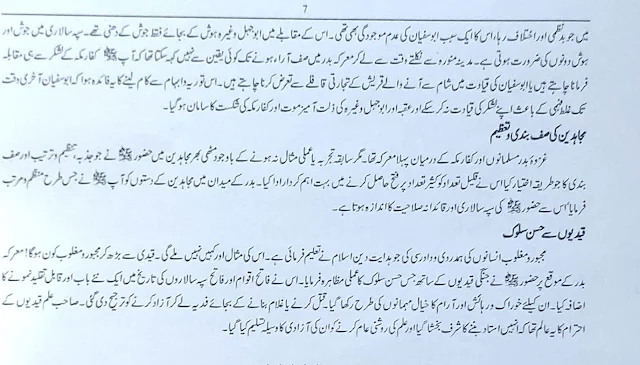 7
میں جو بدنظمی اور اختلاف رہا، اس کا ایک سبب ابوسفیان کی عدم موجودگی بھی تھی۔ اس کے مقابلے میں ابوجہل وغیرہ ہوش کے بجائے فقط جوش کے دھنی تھے۔ سپہ سالاری میں جوش اور
ہوش دونوں کی ضرورت ہوتی ہے۔ مدینہ منورہ سے نکلتے وقت سے لے کر معرکہ بدر میں صف آراء ہونے تک کوئی یقین سے نہیں کہہ سکتا تھا کہ آپ ﷺ کفار مکہ کے لشکر سے ہی مقابلہ
فرمانا چاہتے ہیں یا ابوسفیان کی قیادت میں شام سے آنے والے قریش کے تجارتی قافلے سے تعرض کرنا چاہتے ہیں۔ اس توریہ و ابہام سے کام لینے کا یہ فائدہ ہوا کہ ابوسفیان آخری وقت
تک غلط فہمی کے باعث اپنے لشکر کی قیادت نہ کر سکے اور عتبہ اور ابوجہل وغیرہ کی ذلت آمیز موت اور کفار مکہ کی شکست کا سامان ہو گیا۔
مجاہدین کی صف بندی و تنظیم
غزوۂ بدر مسلمانوں اور کفار مکہ کے درمیان پہلا معرکہ تھا۔ مگر سابقہ تجربہ یا عملی مثال نہ ہونے کے باوجود مٹھی بھر مجاہدین میں حضور ﷺ نے جو جذبہ، تنظیم و ترتیب اور صف
بندی کا جو طریقہ اختیار کیا اس نے قلیل تعداد کو کثیر تعداد پر فتح حاصل کرنے میں بہت اہم کردار ادا کیا۔ بدر کے میدان میں مجاہدین کے دستوں کو آپ ﷺ نے جس طرح منظم و مرتب
فرمایا اس سے حضور ﷺ کی سپہ سالاری اور قائدانہ صلاحیت کا اندازہ ہوتا ہے۔
قیدیوں سے حسن سلوک
مجبور و مغلوب انسانوں کی ہمدردی و دادرسی کی جو ہدایت دین اسلام نے تعلیم فرمائی ہے۔ اس کی مثال اور کہیں نہیں ملے گی۔ قیدی سے بڑھ کر مجبور و مغلوب کون ہوگا! معرکہ
بدر کے موقع پر حضور ﷺ نے جنگی قیدیوں کے ساتھ جس حسن سلوک کا عملی مظاہرہ فرمایا۔ اس نے فاتح اقوام اور فاتح سپہ سالاروں کی تاریخ میں ایک نئے باب اور قابل تقلید نمونے کا
اضافہ کیا۔ ان کیلئے خوراک و رہائش اور آرام کا خیال مہمانوں کی طرح رکھا گیا۔ قتل کرنے یا غلام بنانے کے بجائے فدیہ لے کر آزاد کرنے کو ترجیح دی گئی۔ صاحب علم قیدیوں کے
احترام کا یہ عالم تھا کہ انہیں استاد بننے کا شرف بخشا گیا اور علم کی روشنی عام کرنے کو ان کی آزادی کا وسیلہ تسلیم کیا گیا۔